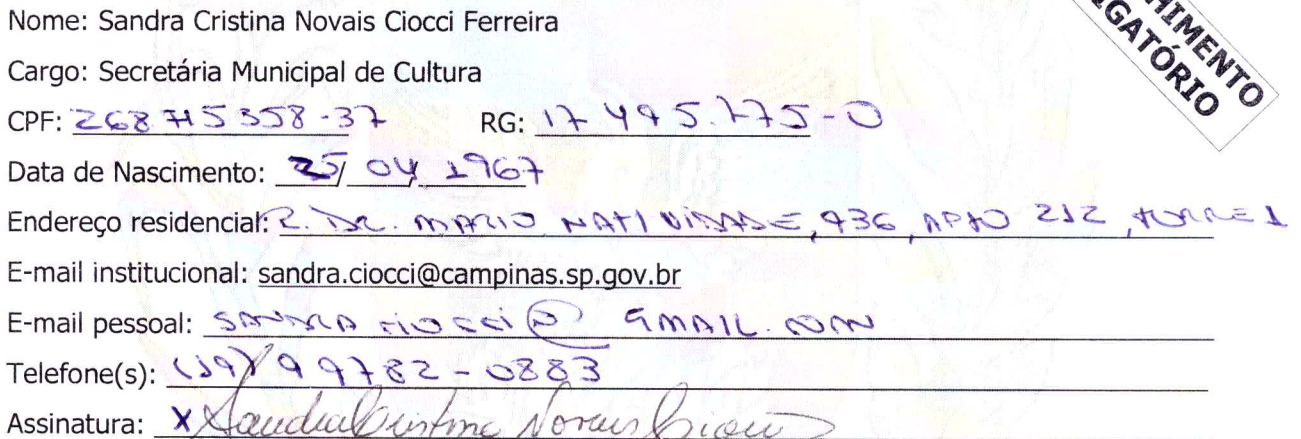 HIMENTO
GATÓRIO
Nome: Sandra Cristina Novais Ciocci Ferreira
Cargo: Secretária Municipal de Cultura
CPF: 268 715 358-37 RG: 17 495.775-0
Data de Nascimento: 25/ 04 1967
Endereço residencial: R. DR. MARIO NATIVIDADE, 936, APTO 212, TORRE 1
E-mail institucional: sandra.ciocci@campinas.sp.gov.br
E-mail pessoal: SANDRA CIOCCI@ GMAIL.COM
Telefone(s): (19) 99782-0883
Assinatura: X Sandra Cristina Novais Ciocci